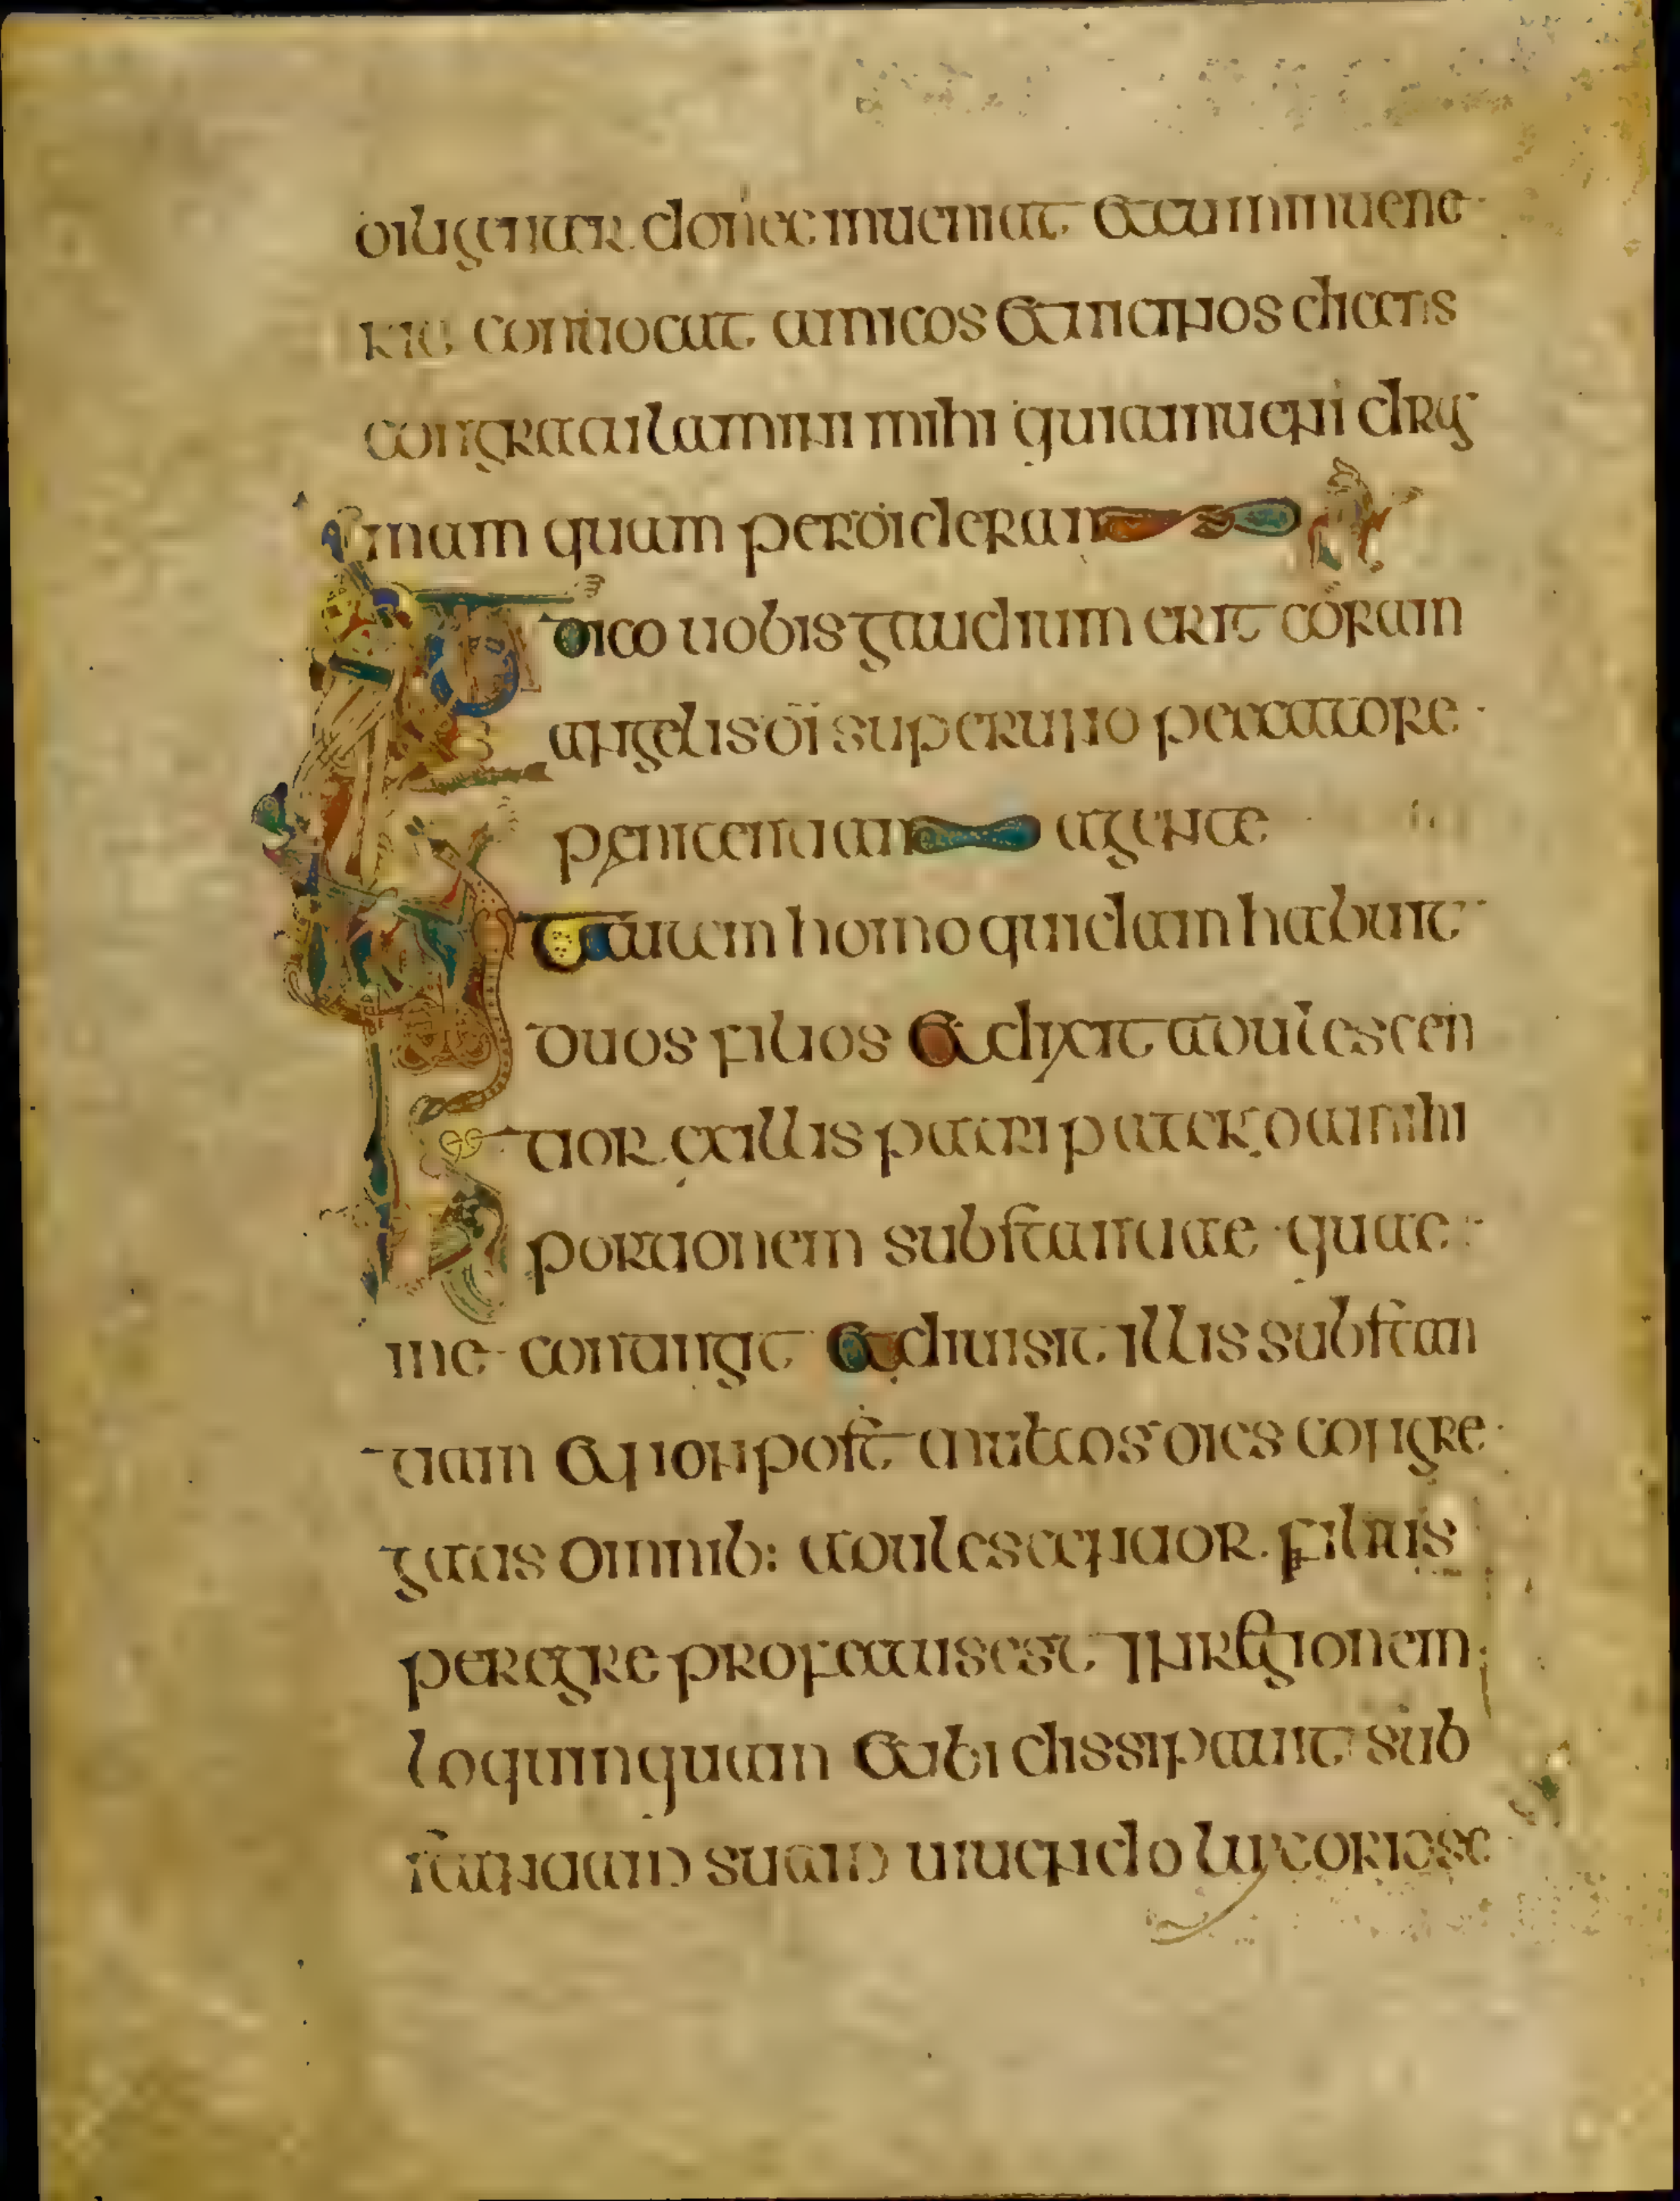 diligenter donec inueniat et cum inuene
rit conuocat amicos et uicinos dicens
congratulamini mihi quia inueni drag
mam quam perdideram
Ita dico uobis gaudium erit coram
angelis di super uno peccatore
penitentiam agente
Et autem homo quidam habuit
duos filios et dixit adulescen
tior ex illis patri pater da mihi
portionem substantiae quae
me contingt et diuisit illis substan
tiam et non post multos dies congre
gatis omnib: adulescentior filius
peregre profectus est in regionem
loquinquam et ibi dissipauit sub
stantiam suam uiuendo luxoriose